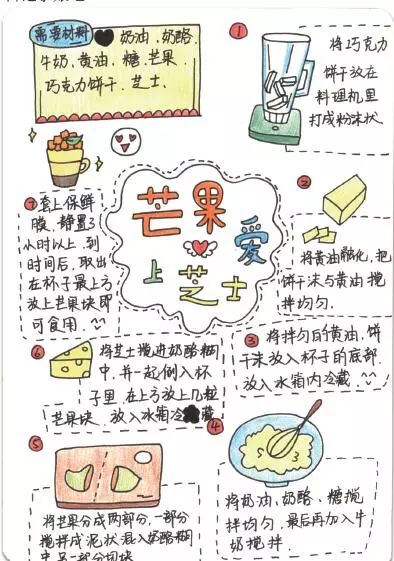 需要材料
奶油、奶酪、
牛奶、黄油、糖、芒果
巧克力饼干、芝士.
①
将巧克力
饼干放在
料理机里
打成粉末状
芒果
爱
上芝士
②
将黄油融化,把
饼干末与黄油搅
拌均匀.
③ 将拌匀后的黄油,饼
干末放入杯子的底部.
放入冰箱内冷藏.
④
将奶油、奶酪、糖搅
拌均匀.最后再加入牛
奶搅拌.
⑤
将芒果分成两部分,一部分
搅拌成泥状混入奶酪糊
中另一部分切块
⑥ 将芝士搅进奶酪糊
中,并一起倒入杯
子里.在上方放上几粒
芒果块.放入冰箱冷藏
⑦ 套上保鲜
膜,静置3
小时以上,到
时间后,取出
在杯子最上方
放上芒果块即
可食用.